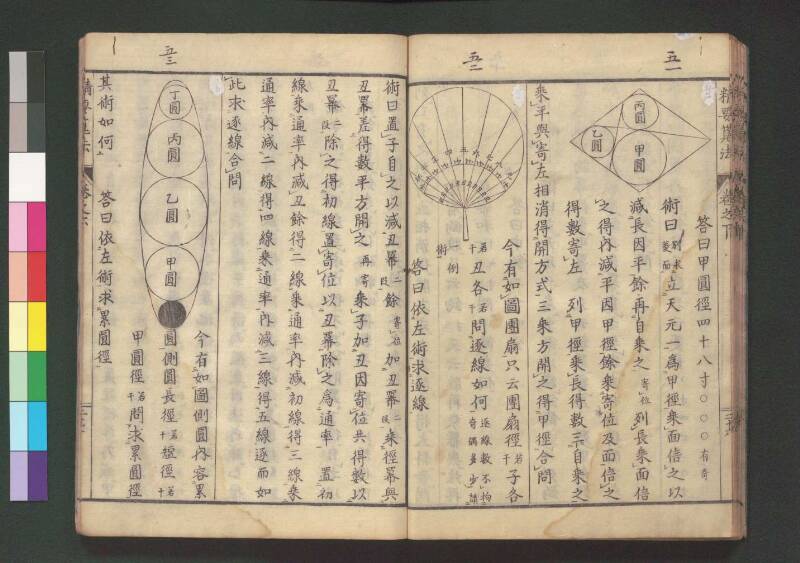 五一
五二
精要算法
卷之下
丙圓
乙圓
甲圓
答曰甲圓徑四十八寸〇〇〇有奇
術曰立天元一爲甲徑乘面倍之以
減長因平餘再自乘之寄位列長乘面倍
之得內減平因甲徑餘乘寄位及面倍之
得數寄左列甲徑乘長得數三自乘之
乘平與寄左相消得開方式三乘方開之得甲徑合問
今有如圖團扇只云團扇徑若干子各
若干丑各若干問逐線如何逐線數不拘奇偶多少
一例
術
答曰依左術求逐線
五三
術曰置子自之以減丑冪二段餘寄位加丑冪二段乘徑冪與
丑冪差得數平方開之再寄乘子加丑因寄位共得數以
丑冪二段除之得初線置寄位以丑冪除之爲通率置初
線乘通率內減丑餘得二線乘通率內減初線得三線乘
通率內減二線得四線乘通率內減三線得五線逐而如
此求逐線合問
丁圓
丙圓
乙圓
甲圓
今有如圖側圓內容累
圓側圓長徑若干短徑若干
甲圓徑若干問求累圓徑
其術如何
答曰依左術求累圓徑